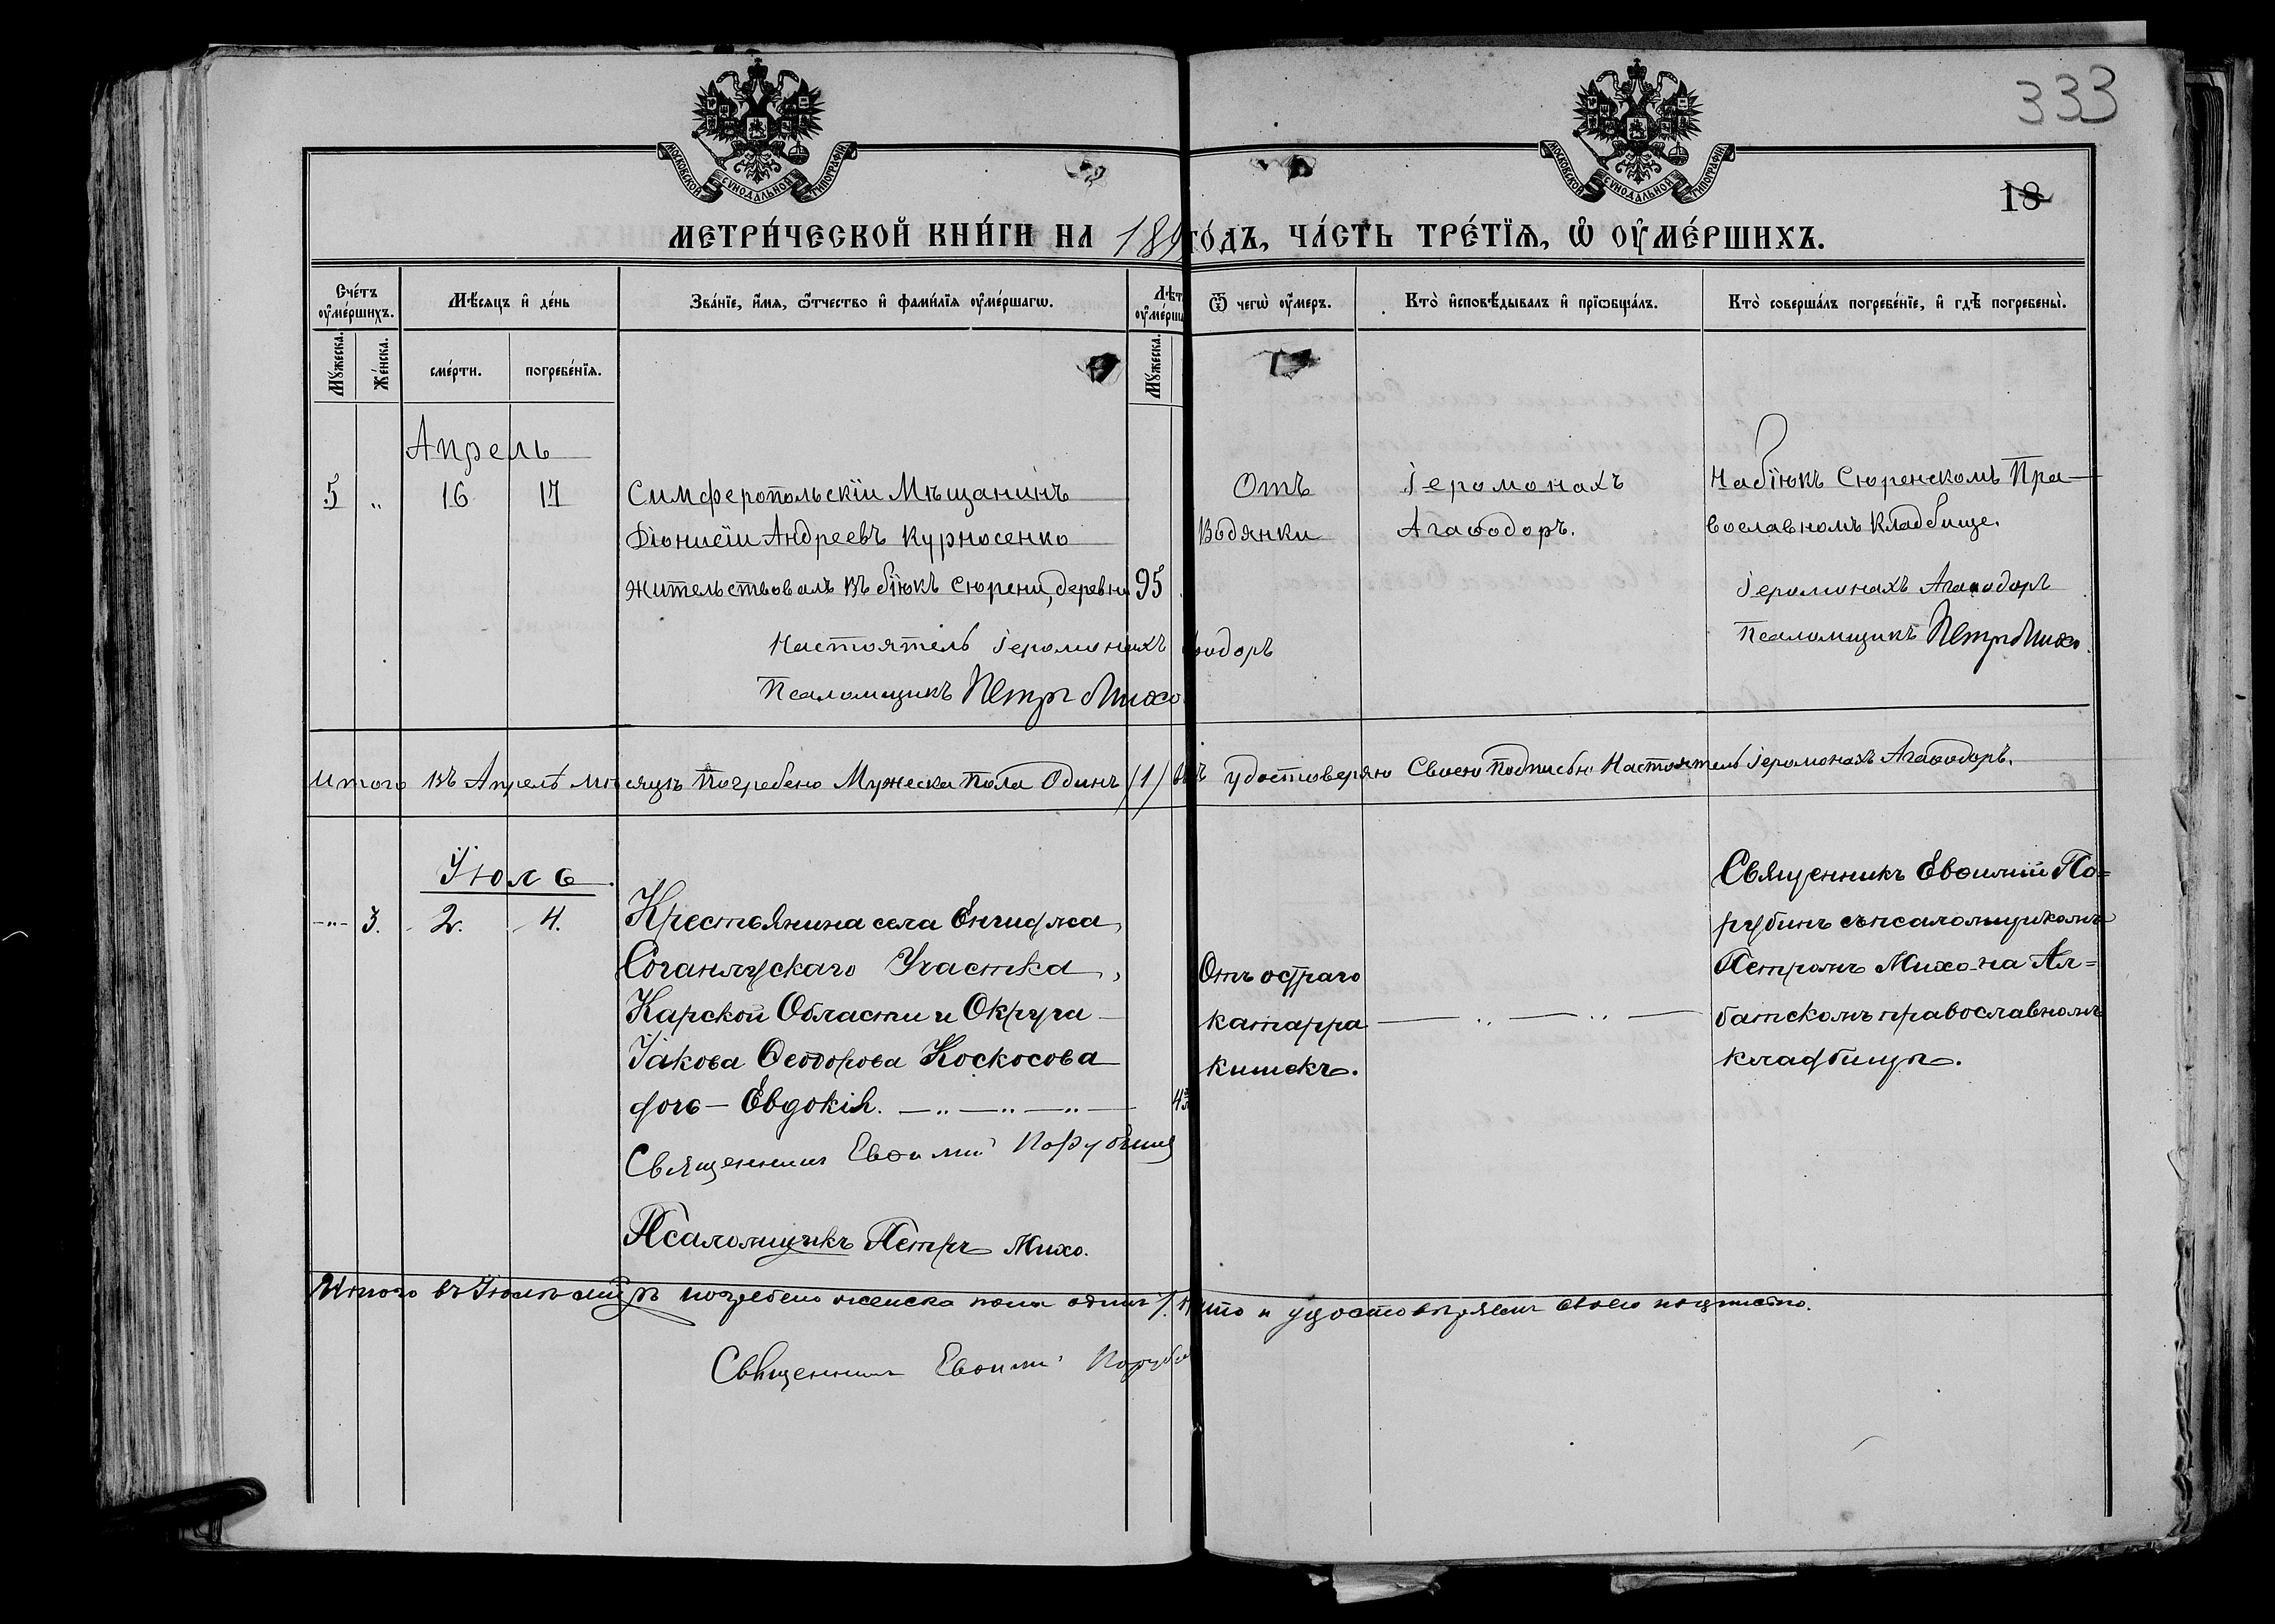 333
МОСКОВСКОЙ СѴНОДАЛЬНОЙ ТИПОГРАФІИ
МОСКОВСКОЙ СѴНОДАЛЬНОЙ ТИПОГРАФІИ
18
МЕТРИ́ЧЕСКОЙ КНИ́ГИ НА 189 ГО́ДЪ, ЧА́СТЬ ТРЕ́ТІѦ, Ѡ҆ ОУ҆МЕ́РШИХЪ.
Сче́тъ оу҆ме́ршихъ.
Мꙋ́жеска.
Же́нска.
Мѣ́сяцъ и҆ де́нь
сме́рти.
погребе́нїѧ.
Зва́нїе, и҆́мѧ, ѻ҆́тчество и҆ фами́лїѧ оу҆ме́ршагѡ.
Лѣт
оу҆ме́рш
Мꙋ́жеска.
Ѿ чегѡ̀ оу҆́меръ.
Кто̀ и҆сповѣ́дывалъ и҆ прїѡбща́лъ.
Кто̀ соверша́лъ погребе́нїе, и҆ гдѣ̀ погребены̀.
Апрель
5 " 16 17
Симферопольскіи Мѣщанинъ
Діонисіи Андреевъ Курносенко
жительствовалъ въ біюкъ Сюрени, деревни 95
Настоятель Іеромонахъ
ѳодоръ
Псаломщикъ Петръ Михо
Отъ
Водянки
Іеромонахъ
Агаѳодоръ.
На біюкъ Сюренскомъ Пра-
вославномъ Кладбище.
Іеромонахъ Агаѳодоръ
Псаломщикъ Петръ Михо.
Итого въ Апрелѣ мѣсяцѣ Погребено Мужеска Пола Одинъ (1) удостоверяю Своею Подписью Настоятель Іеромонахъ Агаѳодоръ.
Іюль.
-"- 3. 2. 4.
Крестьянина села Енгиджа,
Соганлугскаго Участка,
Карской Области и Округа
Іакова Ѳеодорова Коскосова
дочь — Евдокія.
Священникъ Евѳимій Порубинъ
Псаломщикъ Петръ Михо.
Отъ остраго
катарра
кишекъ.
Священникъ Евѳимій По=
рубинъ съ псаломщикомъ
Петромъ Михо на Ал=
батскомъ православномъ
кладбищѣ.
Итого въ Іюлѣ погребено женска пола одна 1. что и удостовѣряемъ своею подписью.
Священникъ Евѳимій